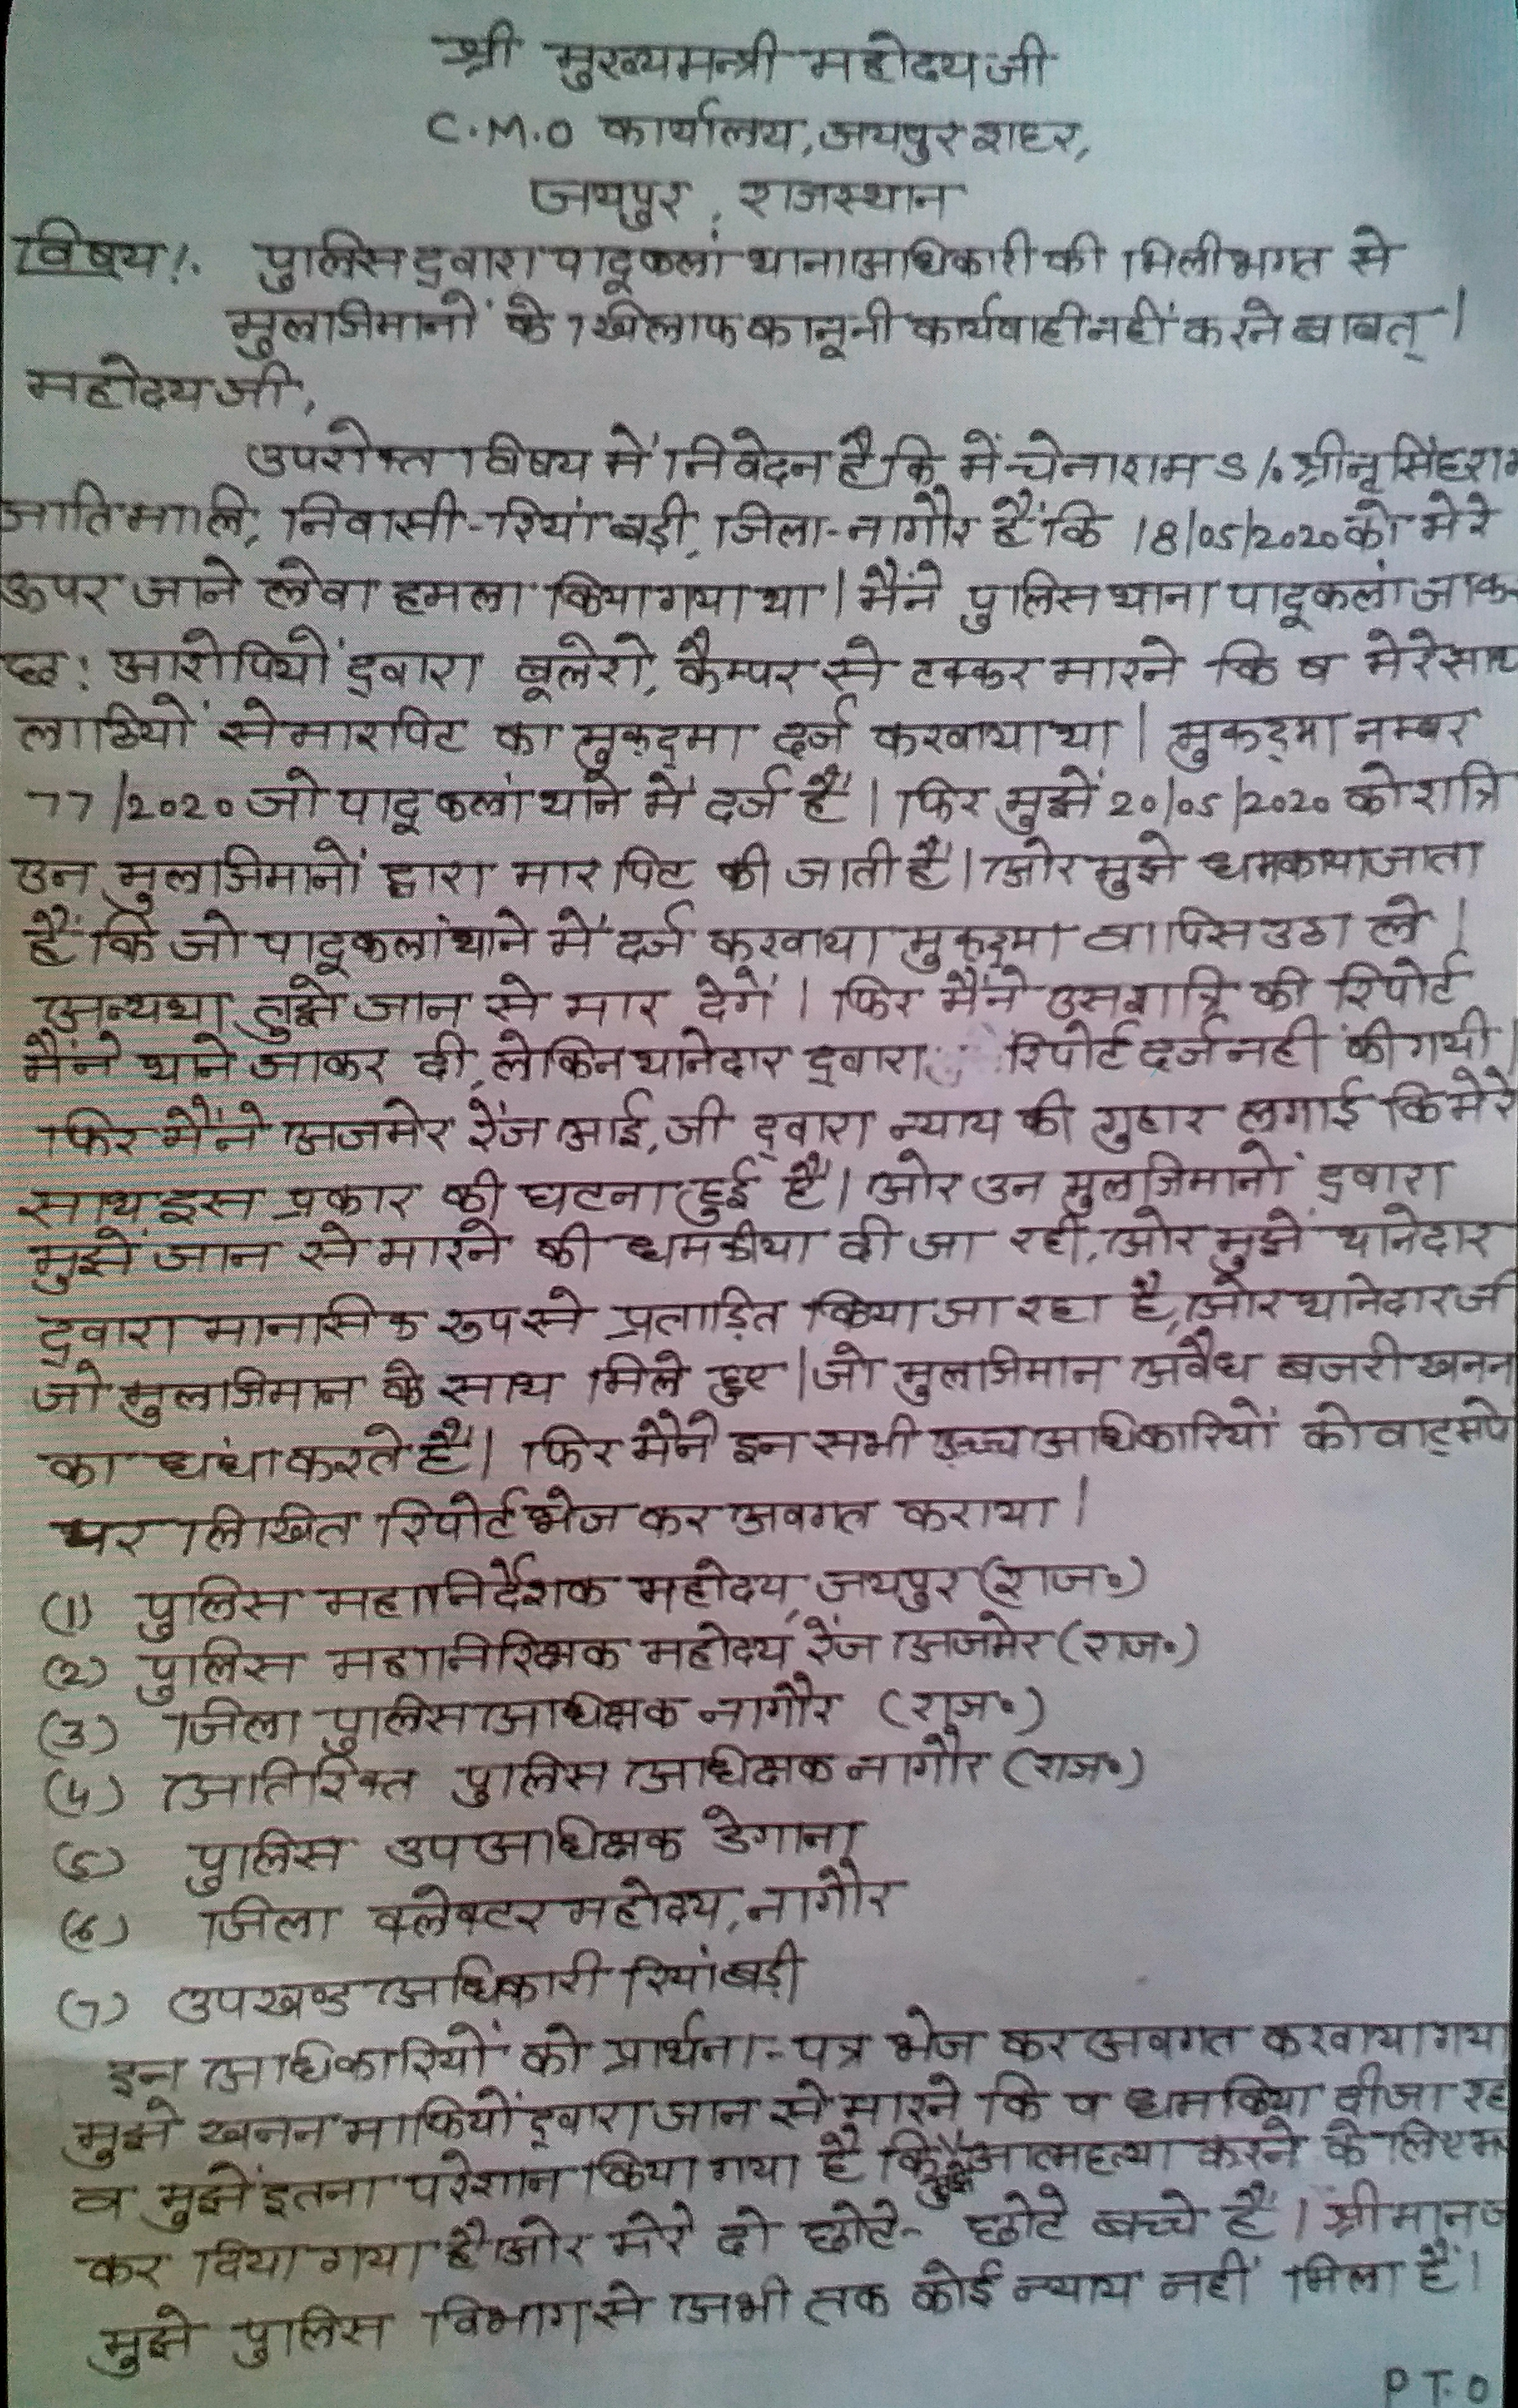 श्री मुख्यमन्त्री महोदय जी
C.M.O कार्यालय, जयपुर शहर,
जयपुर, राजस्थान
विषय:- पुलिस द्वारा पादूकलां थानाअधिकारी की मिलीभगत से
मुलाजिमानों के खिलाफ कानूनी कार्यवाही नहीं करने बाबत् ।
महोदय जी,
उपरोक्त विषय में निवेदन है कि में चेनाराम S/o श्री नृसिंहराम
जाति माली, निवासी-रियां बड़ी, जिला-नागौर हैं कि 18/05/2020 को मेरे
ऊपर जाने लेवा हमला किया गया था । मैंने पुलिस थाना पादूकलां जाकर
छ: आरोपियों द्वारा बूलेरो, कैम्पर से टक्कर मारने कि व मेरे साथ
लाठियों से मारपिट का मुकद्मा दर्ज करवाया था । मुकद्मा नम्बर
77/2020 जो पादूकलां थाने में दर्ज हैं । फिर मुझें 20/05/2020 को रात्रि
उन मुलाजिमानों द्वारा मारपिट की जाती हैं । ओर मुझे धमकाया जाता
हैं कि जो पादूकलां थाने में दर्ज करवाया मुकद्मा वापिस उठा ले ।
अन्यथा तुझे जान से मार देगें । फिर मैंने उस रात्रि की रिपोर्ट
मैंने थाने जाकर दी, लेकिन थानेदार द्वारा रिपोर्ट दर्ज नहीं की गयी ।
फिर मैंने अजमेर रेंज आई.जी द्वारा न्याय की गुहार लगाई कि मेरे
साथ इस प्रकार की घटना हुई हैं । ओर उन मुलाजिमानों द्वारा
मुझें जान से मारने की धमकीया दी जा रही, ओर मुझें थानेदार
द्वारा मानसिक रुप से प्रताड़ित किया जा रहा है, ओर थानेदार जी
जो मुलाजिमान के साथ मिले हुए । जो मुलाजिमान अवैध बजरी खनन
का धंधा करते हैं । फिर मैंने इन सभी उच्च अधिकारियों को वाट्सपे
पर लिखित रिपोर्ट भेज कर अवगत कराया ।
(1) पुलिस महानिर्देशक महोदय, जयपुर (राज०)
(2) पुलिस महानिरिक्षक महोदय, रेंज अजमेर (राज०)
(3) जिला पुलिस अधिक्षक नागौर (राज०)
(4) अतिरिक्त पुलिस अधिक्षक नागौर (राज०)
(5) पुलिस उपअधिक्षक डेगाना
(6) जिला क्लेक्टर महोदय, नागौर
(7) उपखण्ड अधिकारी रियांबड़ी
इन अधिकारियों को प्रार्थना-पत्र भेज कर अवगत करवाया गया
मुझे खनन माफियों द्वारा जान से मारने कि व धमकिया दी जा रही
व मुझें इतना परेशान किया गया है कि मुझे आत्महत्या करने के लिए
कर दिया गया है ओर मेरे दो छोटे- छोटे बच्चे हैं । श्रीमान जी
मुझे पुलिस विभाग से अभी तक कोई न्याय नहीं मिला हैं ।
P T. O